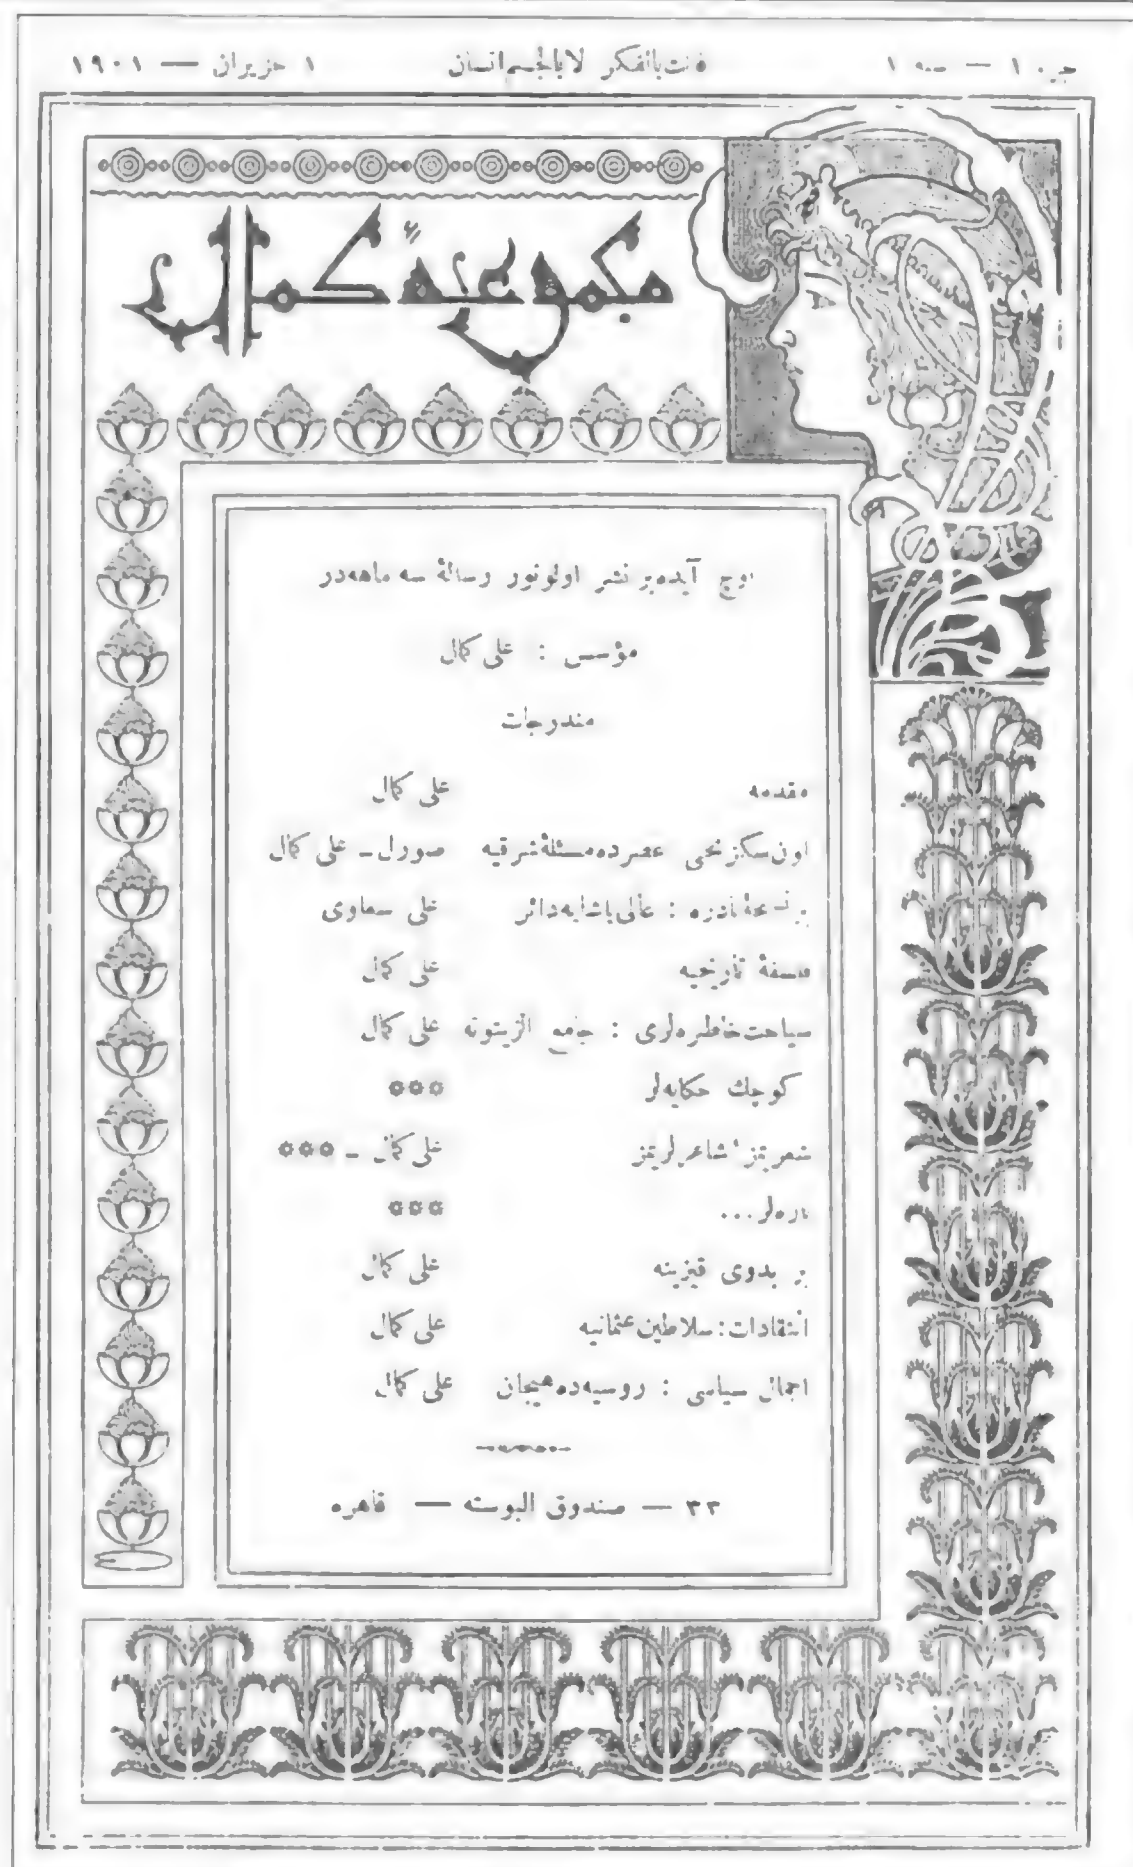 جزء ١ — سنه ١ فانت بالفكر لا بالجسم انسان ١ حزيران — ١٩٠١
مجموعهٔ كمال
اوچ آيده بر نشر اولونور رسالهٔ سه ماهه در
مؤسس : على كمال
مندرجات
مقدمه على كمال
اون سكزنجى عصرده مسئلهٔ شرقيه صورل ــ على كمال
بر نسخهٔ نادره : عالى پاشايه دائر على سعاوى
فلسفهٔ تاريخيه على كمال
سياحت خاطره لرى : جامع الزيتونه على كمال
كوچك حكايه لر ***
شعريمز، شاعرلريمز على كمال ــ ***
پاره لر... ***
بر بدوى قيزينه على كمال
انتقادات : سلاطين عثمانيه على كمال
اجمال سياسى : روسيه ده هيجان على كمال
٣٣ — صندوق البوسته — قاهره